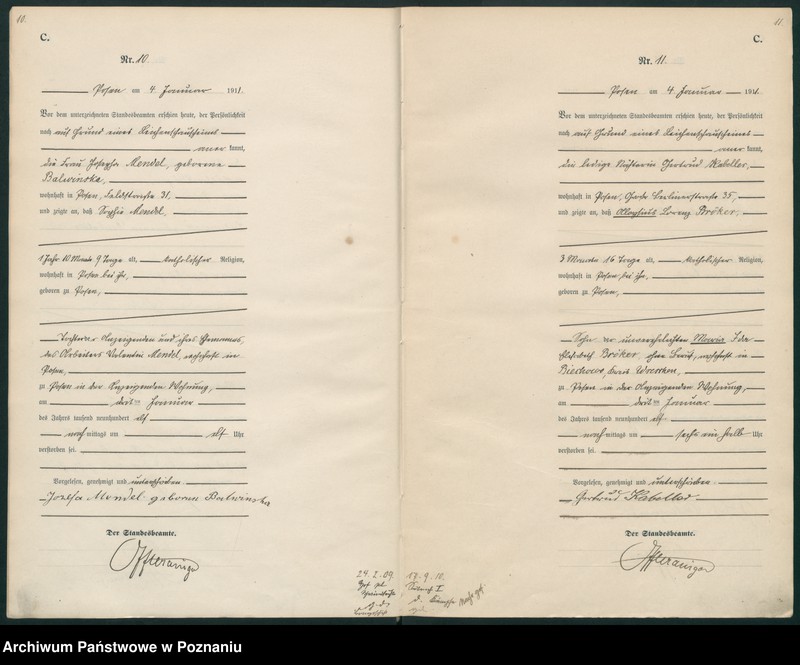 10.
C.
Nr. 10.
Posen am 4. Januar 1911.
Vor dem unterzeichneten Standesbeamten erschien heute, der Persönlichkeit
nach auf Grund eines Leichenschauscheines
anerkannt,
die Frau Josepha Mendel, geborene
Balwinska,
wohnhaft in Posen, Feldstraße 31,
und zeigte an, daß Sophie Mendel,
1 Jahr 10 Monate 9 Tage alt, katholischer Religion,
wohnhaft in Posen bei ihr,
geboren zu Posen,
Tochter der Anzeigenden und ihres Ehemannes,
des Arbeiters Valentin Mendel, wohnhaft in
Posen,
zu Posen in der Anzeigenden Wohnung,
am dritten Januar
des Jahres tausend neunhundert elf
nachmittags um elf Uhr
verstorben sei.
Vorgelesen, genehmigt und unterschrieben
Josefa Mendel geborene Balwinska
Der Standesbeamte.
24. 2. 09.
11.
C.
Nr. 11.
Posen am 4. Januar 1911.
Vor dem unterzeichneten Standesbeamten erschien heute, der Persönlichkeit
nach auf Grund eines Leichenschauscheines
anerkannt,
die ledige Näherin Gertrud Kabeller,
wohnhaft in Posen, Große Berlinerstraße 35,
und zeigte an, daß Aloysius Lorenz Bröker,
3 Monate 16 Tage alt, katholischer Religion,
wohnhaft in Posen, bei ihr,
geboren zu Posen,
Sohn der unverehelichten Maria Ida
Elisabeth Bröker, ohne Beruf, wohnhaft in
Kreis
zu Posen in der Anzeigenden Wohnung,
am dritten Januar
des Jahres tausend neunhundert elf
nachmittags um sechs einhalb Uhr
verstorben sei.
Vorgelesen, genehmigt und unterschrieben
Gertrud Kabeller
Der Standesbeamte.
18. 9. 10.
Archiwum Państwowe w Poznaniu